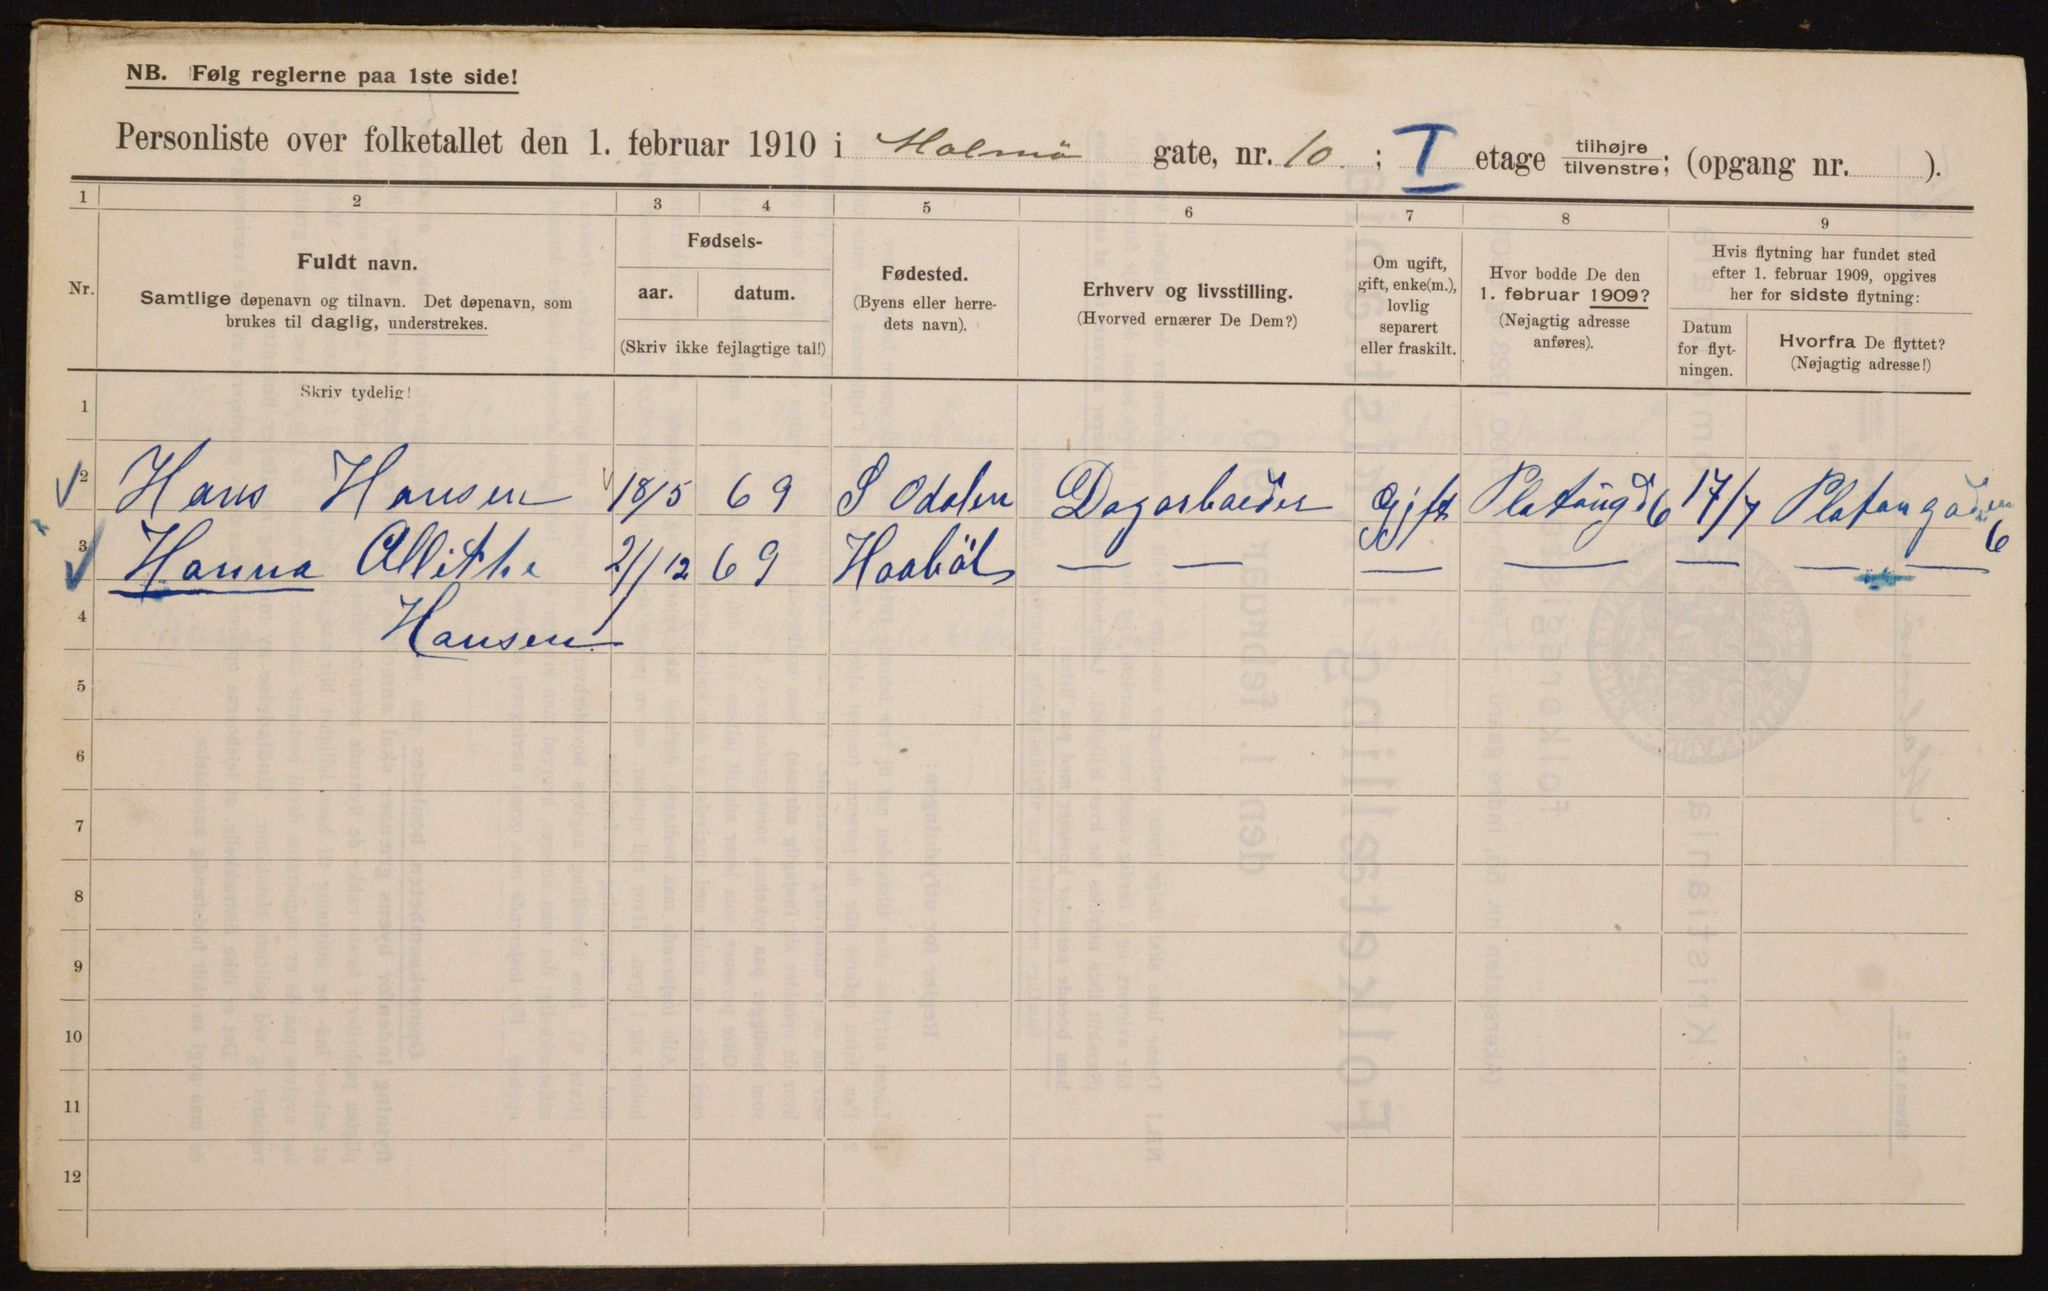 NB. Følg reglerne paa 1ste side!
Personliste over folketallet den 1. februar 1910 i Malmö gate, nr. 10 ; I etage tilhøjre/tilvenstre; (opgang nr. ).
1 2 3 4 5 6 7 8 9
Nr.
Fuldt navn.
Samtlige døpenavn og tilnavn. Det døpenavn, som
brukes til daglig, understrekes.
Fødsels-
aar. datum.
(Skriv ikke fejlagtige tal!)
Fødested.
(Byens eller herre-
dets navn).
Erhverv og livsstilling.
(Hvorved ernærer De Dem?)
Om ugift,
gift, enke(m.),
lovlig
separert
eller fraskilt.
Hvor bodde De den
1. februar 1909?
(Nøjagtig adresse
anføres).
Hvis flytning har fundet sted
efter 1. februar 1909, opgives
her for sidste flytning:
Datum
for flyt-
ningen.
Hvorfra De flyttet?
(Nøjagtig adresse!)
Skriv tydelig!
1
2 Hans Hansen 18/5 69 S Odalen Dagarbaeder Gift Platangd 6 17/7 Platangaden 6
3 Hanna 2/12 69 — — — — — — —
4 Hansen
5
6
7
8
9
10
11
12